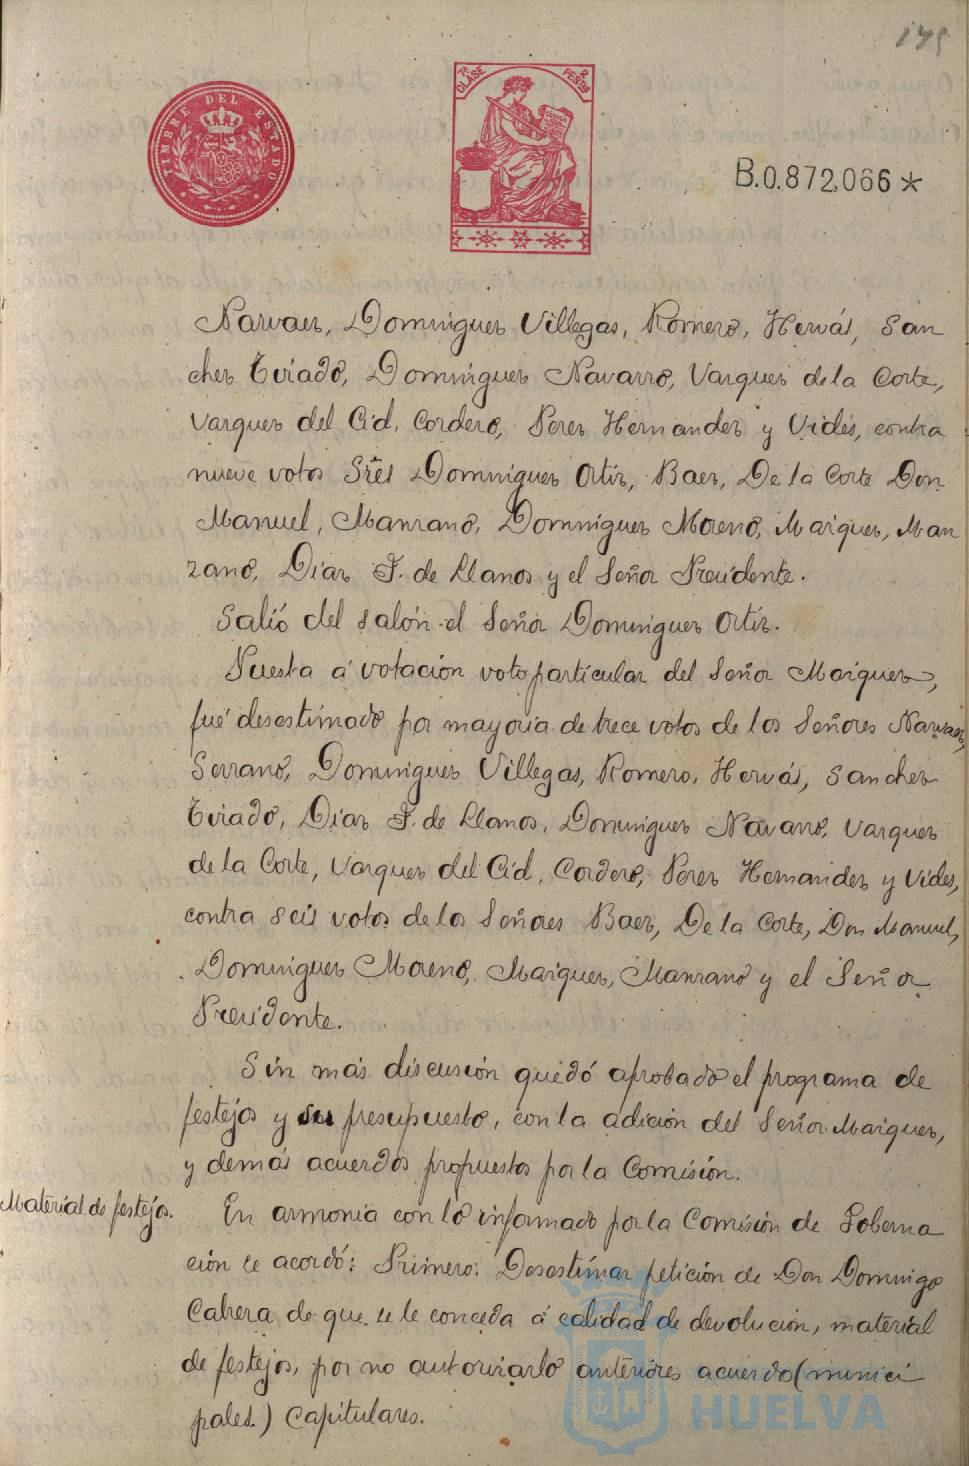 175
TIMBRE DEL ESTADO
7ª CLASE 2 PESTAS
B.0.872,066*
Narvaez, Dominguez Villegas, Romero, Hervás, San
chez Tirado, Dominguez Navarro, Vazquez de la Corte,
Vazquez del Cid, Cordero, Perez Hernandez y Vides, contra
nueve votos Sres Dominguez Ortiz, Baez, De la Corte Don
Manuel, Manzano, Dominguez Moreno, Marquez, Man
zano, Diaz F. de Llanos y el Señor Presidente.
Salió del salón el Señor Dominguez Ortiz.
Puesta á votación voto particular del Señor Marquez,
fué desestimado por mayoria de trece votos de los Señores Narvaez,
Serrano, Dominguez Villegas, Romero, Hervás, Sanchez
Tirado, Diaz F. de Llanos, Dominguez Navarro, Vazquez
de la Corte, Vazquez del Cid, Cordero, Perez Hernandez y Vides,
contra seis votos de los Señores Baez, De la Corte, Don Manuel,
Dominguez Moreno, Marquez, Manzano y el Señor
Presidente.
Sin más discusión quedó aprobado el programa de
festejos y su presupuesto, con la adición del Señor Marquez,
y demás acuerdos propuestos por la Comisión.
Material de festejos.
En armonia con lo informado por la Comisión de Goberna
ción se acordó: Primero: Desestimar petición de Don Domingo
Cabrera de que se le conceda á calidad de devolución, material
de festejos, por no autorizarlo anteriores acuerdos (munici
pales.) Capitulares.
HUELVA